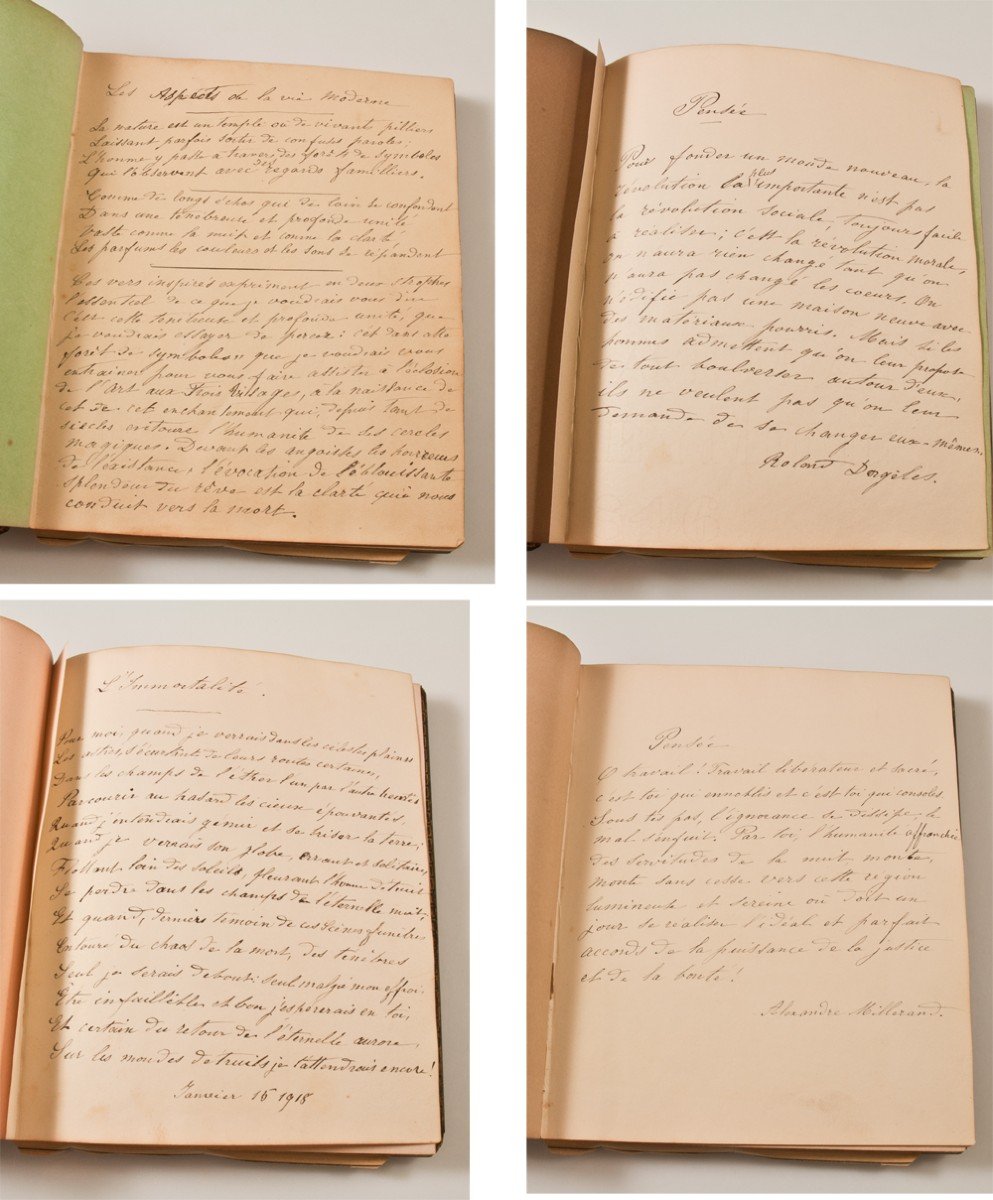 Les Aspects de la vie Moderne
La nature est un temple où de vivant pilliers
Laissant parfois sortir de confuses paroles;
L'homme y passe a travers des forêts de symboles
Qui l'observent avec des regards familliers.
Comme de longs échos qui de loin se confondent
Dans une ténébreuse et profonde unité
Vaste comme la nuit et comme la clarté
Les parfums les couleurs et les sons se répandant
Ces vers inspirés expriment en deux strophes
l'essentiel de ce que je voudrais vous dire
C'est cette ténébreuse et profonde unité, que
je voudrais essayer de percer; c'est dans cette
forêt de symboles que je voudrais vous
entrainer pour vous faire assister à l'éclosion
de l'art aux trois visages, à la naissance de
cet de cet enchantement qui, depuis tant de
siècles entoure l'humanité de ses cercles
magiques. Devant les angoisses les horreurs
de l'existance, l'évocation de l'éblouissante
splendeur du rêve est la clarté qui nous
conduit vers la mort.
Pensée
Pour fonder un monde nouveau, la
révolution la plus importante n'est pas
la révolution sociale, toujours facile
a realiser; c'est la révolution morale,
on n'aura rien changé tant qu'on
n'aura pas changé les coeurs. On
n'édifie pas une maison neuve avec
des matériaux pourris. Mais si les
hommes admettent qu'on leur propose
de tout boulverser autour d'eux,
ils ne veulent pas qu'on leur
demande de se changer eux-mêmes.
Roland Dorgelès.
L'Immortalité.
Pour moi, quand je verrais dans les célestes plaines
Les astres, s'écartant de leurs routes certaines,
Dans les champs de l'éther l'un par l'autre heurtés
Parcourir au hasard les cieux épouvantés,
Quand j'entendrais gémir et se briser la terre;
Quand je verrais son globe, errant et solitaire,
Flottant loin des soleils, pleurant l'homme détruit
Se perdre dans les champs de l'éternelle nuit;
Et quand, derniers témoin de ces scènes funèbres
Entouré du chaos de la mort, des ténèbres
Seul je serais debout: seul malgré mon effroi,
Être infaillible et bon j'espererais en toi,
Et certain du retour de l'éternelle aurore,
Sur les mondes detruits je t'attendrais encore!
Janvier 15 1918
Pensée
O travail! Travail liberateur et sacré,
c'est toi qui ennoblis et c'est toi qui consoles.
Sous tes pas, l'ignorance se dissipe, le
mal s'enfuit. Par toi, l'humanité affranchie
des servitudes de la nuit monte,
monte sans cesse vers cette région
lumineuse et sereine où doit un
jour se realiser l'idéal et parfait
accords de la puissance de la justice
et de la bonté!
Alexandre Millerand.